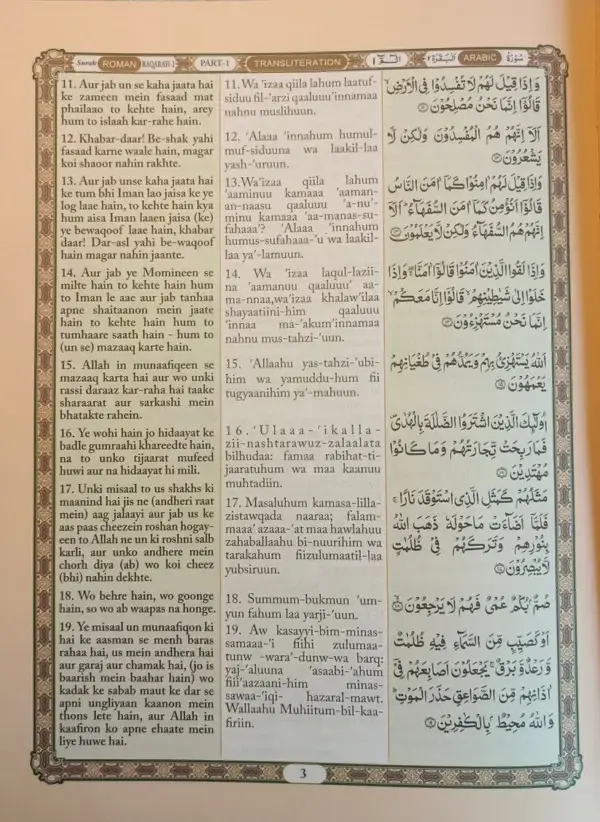 Surah ROMAN BAQARAH-2 PART-1 TRANSLITERATION الٓمّٓ ١ البقرة ٢ ARABIC سُوْرَةُ
11. Aur jab un se kaha jaata hai
ke zameen mein fasaad mat
phailaao to kehte hain, arey
hum to islaah kar-rahe hain.
12. Khabar-daar! Be-shak yahi
fasaad karne waale hain, magar
koi shaoor nahin rakhte.
13. Aur jab unse kaha jaata hai
ke tum bhi Iman lao jaisa ke ye
log laae hain, to kehte hain kya
hum aisa Iman laaen jaisa (ke)
ye bewaqoof laae hain, khabar
daar! Dar-asl yahi be-waqoof
hain magar nahin jaante.
14. Aur jab ye Momineen se
milte hain to kehte hain hum
to Iman le aae aur jab tanhaa
apne shaitaanon mein jaate
hain to kehte hain hum to
tumhaare saath hain - hum to
(un se) mazaaq karte hain.
15. Allah in munaafiqeen se
mazaaq karta hai aur wo unki
rassi daraaz kar-raha hai taake
sharaarat aur sarkashi mein
bhatakte rahein.
16. Ye wohi hain jo hidaayat ke
badle gumraahi khareedte hain,
na to unko tijaarat mufeed
huwi aur na hidaayat hi mili.
17. Unki misaal to us shakhs ki
maanind hai jis ne (andheri raat
mein) aag jalaayi aur jab us ke
aas paas cheezein roshan hogay-
een to Allah ne un ki roshni salb
karli, aur unko andhere mein
chorh diya (ab) wo koi cheez
(bhi) nahin dekhte.
18. Wo behre hain, wo goonge
hain, so wo ab waapas na honge.
19. Ye misaal un munaafiqon ki
hai ke aasman se menh baras
rahaa hai, us mein andhera hai
aur garaj aur chamak hai, (jo is
baarish mein baahar hain) wo
kadak ke sabab maut ke dar se
apni ungliyaan kaanon mein
thons lete hain, aur Allah in
kaafiron ko apne ehaate mein
liye huwe hai.
11. Wa 'izaa qiila lahum laatuf-
siduu fil-'arzi qaaluuu'innamaa
nahnu muslihuun.
12. 'Alaaa 'innahum humul-
muf-siduuna wa laakil-laa
yash-'uruun.
13.Wa'izaa qiila lahum
'aaminuu kamaaa 'aaman-
an-naasu qaaluuu 'a-nu'-
minu kamaaa 'aa-manas-su-
fahaaa'? 'Alaaa 'innahum
humus-sufahaaa-'u wa laakil-
laa ya'-lamuun.
14. Wa 'izaa laqul-lazii-
na 'aamanuu qaaluuu' aa-
ma-nnaa,wa'izaa khalaw'ilaa
shayaatiini-him qaaluuu
'innaa ma-'akum'innamaa
nahnu mus-tahzi-'uun.
15. 'Allaahu yas-tahzi-'ubi-
him wa yamuddu-hum fii
tugyaanihim ya'-mahuun.
16.'Ulaaa-'ikalla-
zii-nashtarawuz-zalaalata
bilhudaa: famaa rabihat-ti-
jaaratuhum wa maa kaanuu
muhtadiin.
17. Masaluhum kamasa-lilla-
zistawqada naaraa; falam-
maaa' azaaa-'at maa hawlahuu
zahaballaahu bi-nuurihim wa
tarakahum fiizulumaatil-laa
yubsiruun.
18. Summum-bukmun 'um-
yun fahum laa yarji-'uun.
19. Aw kasayyi-bim-minas-
samaaa-'i fiihi zulumaa-
tunw -wara'-dunw-wa barq:
yaj-'aluuna 'asaabi-'ahum
fiii'aazaani-him minas-
sawaa-'iqi- hazaral-mawt.
Wallaahu Muhiitum-bil-kaa-
firiin.
وَاِذَا قِيْلَ لَهُمْ لَا تُفْسِدُوْا فِى الْاَرْضِ ۙ
قَالُوْۤا اِنَّمَا نَحْنُ مُصْلِحُوْنَ ⑪
اَلَاۤ اِنَّهُمْ هُمُ الْمُفْسِدُوْنَ وَلٰكِنْ لَّا
يَشْعُرُوْنَ ⑫
وَاِذَا قِيْلَ لَهُمْ اٰمِنُوْا كَمَاۤ اٰمَنَ النَّاسُ
قَالُوْۤا اَنُؤْمِنُ كَمَاۤ اٰمَنَ السُّفَهَآءُ ؕ اَلَاۤ
اِنَّهُمْ هُمُ السُّفَهَآءُ وَلٰكِنْ لَّا يَعْلَمُوْنَ ⑬
وَاِذَا لَقُوا الَّذِيْنَ اٰمَنُوْا قَالُوْۤا اٰمَنَّا ۚ وَاِذَا
خَلَوْا اِلٰى شَيٰطِيْنِهِمْ ۙ قَالُوْۤا اِنَّا مَعَكُمْ ۙ
اِنَّمَا نَحْنُ مُسْتَهْزِءُوْنَ ⑭
اَللّٰهُ يَسْتَهْزِئُ بِهِمْ وَيَمُدُّهُمْ فِىْ طُغْيَانِهِمْ
يَعْمَهُوْنَ ⑮
اُولٰٓئِكَ الَّذِيْنَ اشْتَرَوُا الضَّلٰلَةَ بِالْهُدٰى ۪
فَمَا رَبِحَتْ تِّجَارَتُهُمْ وَمَا كَانُوْا
مُهْتَدِيْنَ ⑯
مَثَلُهُمْ كَمَثَلِ الَّذِى اسْتَوْقَدَ نَارًا ۚ
فَلَمَّاۤ اَضَآءَتْ مَا حَوْلَهٗ ذَهَبَ اللّٰهُ
بِنُوْرِهِمْ وَتَرَكَهُمْ فِىْ ظُلُمٰتٍ
لَّا يُبْصِرُوْنَ ⑰
صُمٌّۢ بُكْمٌ عُمْىٌ فَهُمْ لَا يَرْجِعُوْنَ ⑱
اَوْ كَصَيِّبٍ مِّنَ السَّمَآءِ فِيْهِ ظُلُمٰتٌ
وَّرَعْدٌ وَّبَرْقٌ ۚ يَجْعَلُوْنَ اَصَابِعَهُمْ فِىْۤ
اٰذَانِهِمْ مِّنَ الصَّوَاعِقِ حَذَرَ الْمَوْتِ ؕ
وَاللّٰهُ مُحِيْطٌۢ بِالْكٰفِرِيْنَ ⑲
3